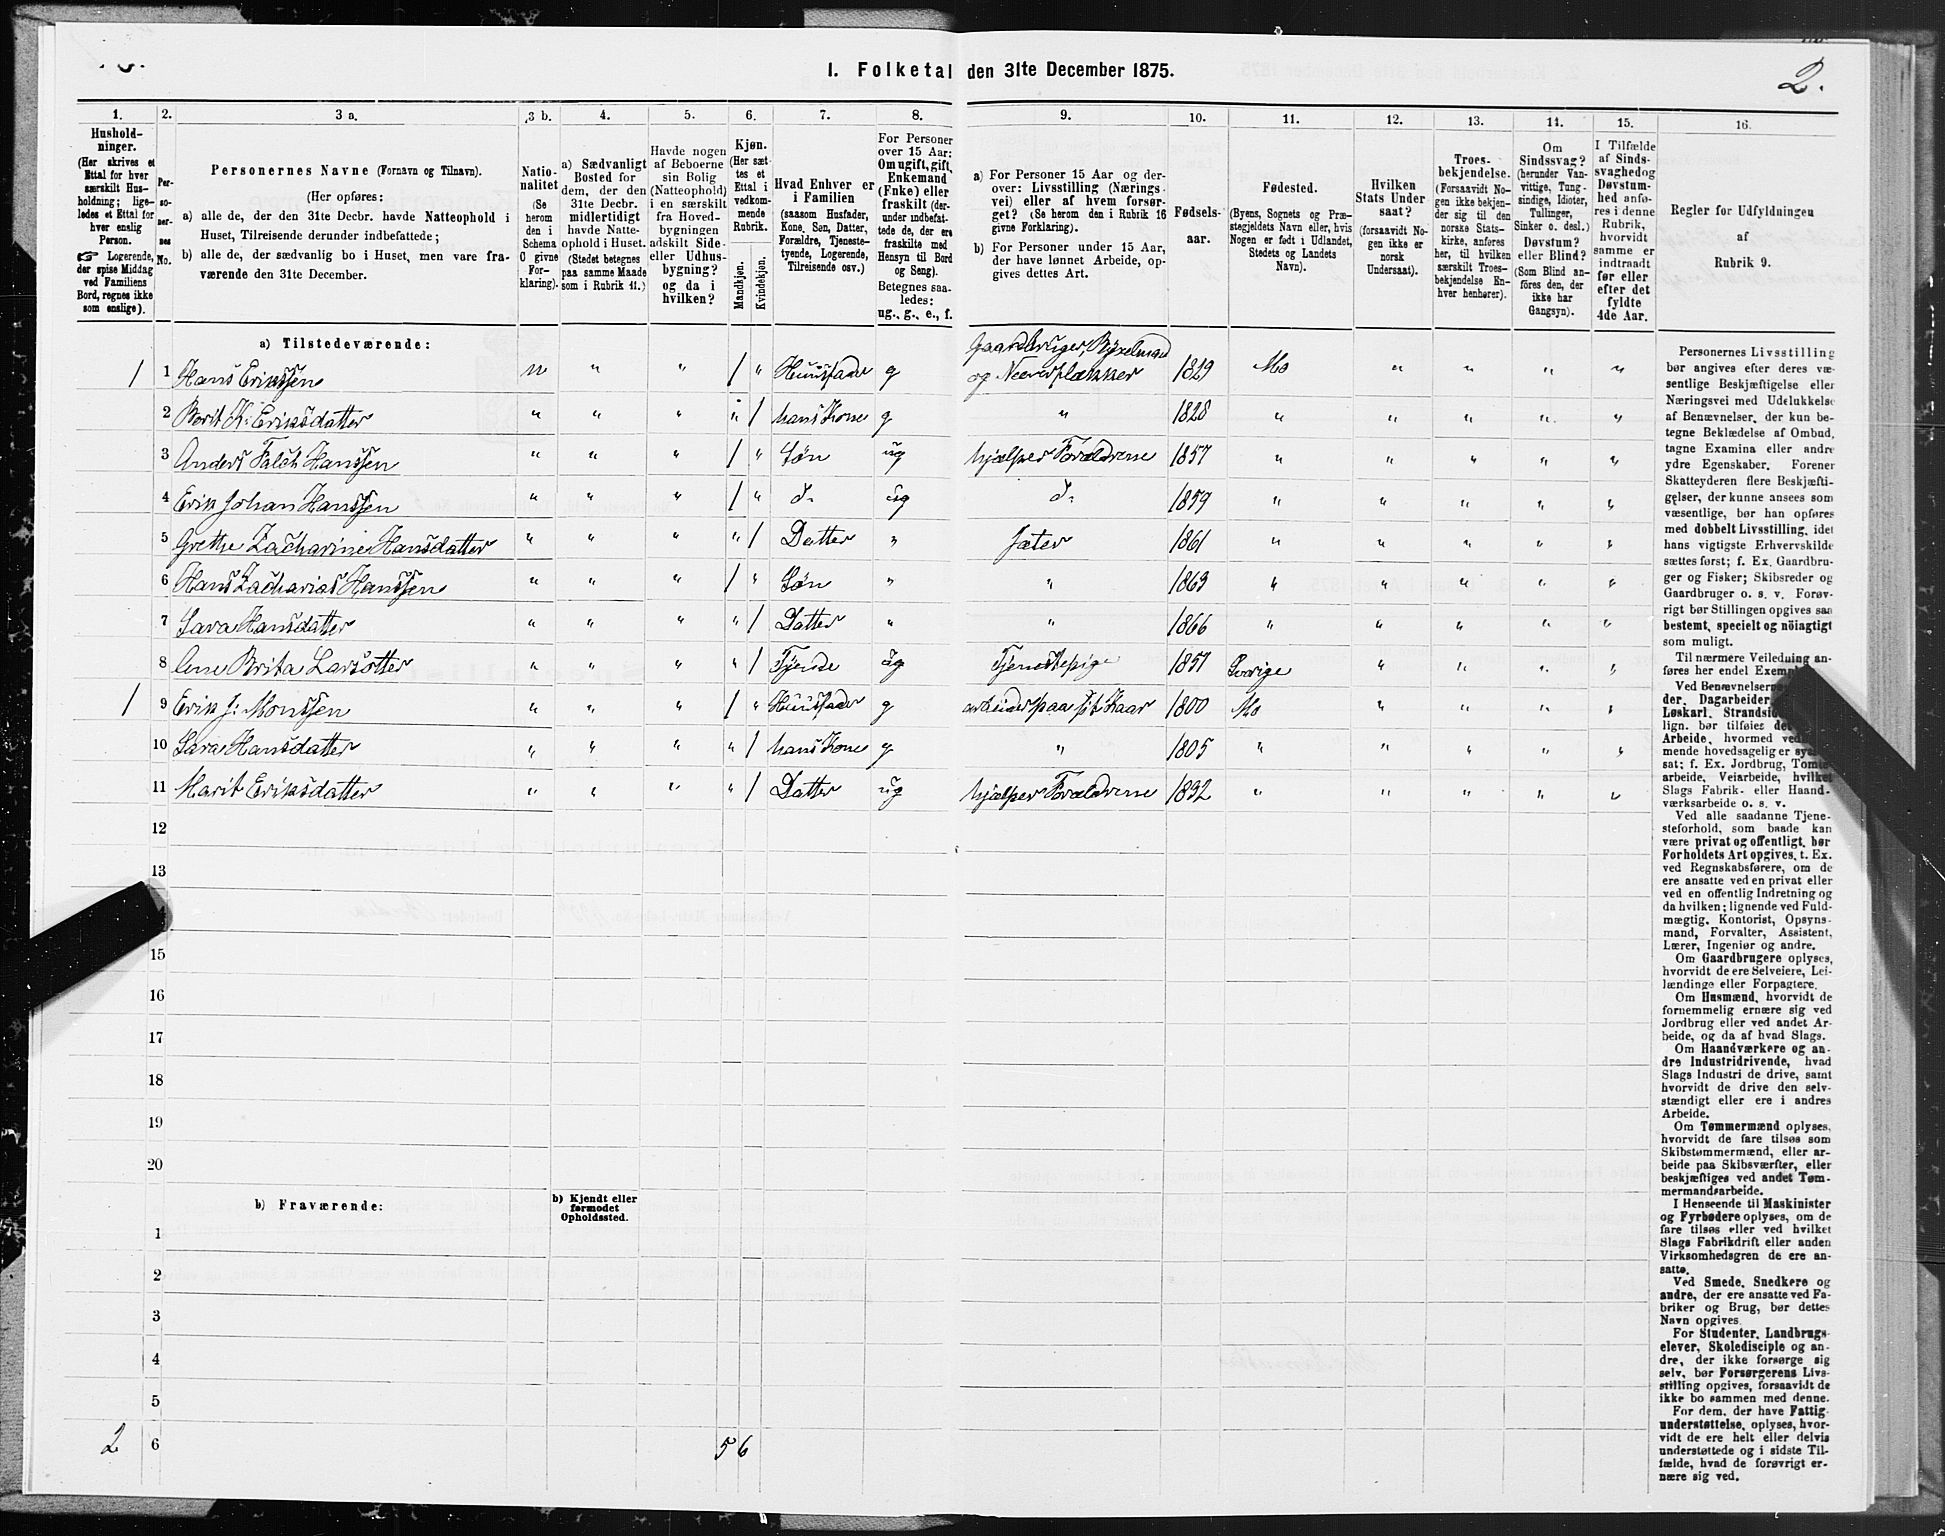 1. Folketal den 31te December 1875.
2.
1.
Hushold-
ninger.
(Her skrives et
Ettal for hver
særskilt Hus-
holdning; lige-
ledes et Ettal for
hver enslig
Person.
Logerende,
der spise Middag
ved Familiens
Bord, regnes ikke
som enslige).
2.
Per-
so-
ner-
nes
No.
3 a.
Personernes Navne (Fornavn og Tilnavn).
(Her opføres:
a) alle de, der den 31te Decbr. havde Natteophold i
Huset, Tilreisende derunder indbefattede;
b) alle de, der sædvanlig bo i Huset, men vare fra-
værende den 31te December.
3 b.
Natio-
nalitet
(Se
herom
den i
Schema
C givne
For-
klaring).
4.
a) Sædvanligt
Bosted for
dem, der den
31te Decbr.
midlertidigt
havde Natte-
ophold i Huset.
(Stedet betegnes
paa samme Maade
som i Rubrik 11.)
5.
Havde nogen
af Beboerne
sin Bolig
(Natteophold)
i en særskilt
fra Hoved-
bygningen
adskilt Side-
eller Udhus-
bygning?
og da i
hvilken?
6.
Kjøn.
(Her sæt-
tes et
Ettal i
vedkom-
mende
Rubrik.
Mandkjøn.
Kvindekjøn.
7.
Hvad Enhver er
i Familien
(saasom Husfader,
Kone, Søn, Datter,
Forældre, Tjeneste-
tyende, Logerende,
Tilreisende osv.)
8.
For Personer
over 15 Aar:
Om ugift, gift,
Enkemand
(Enke) eller
fraskilt (der-
under indbefat-
tede de, der ere
fraskilte med
Hensyn til Bord
og Seng).
Betegnes saa-
ledes:
ug., g., e., f.
9.
a) For Personer 15 Aar og der-
over: Livsstilling (Nærings-
vei) eller af hvem forsør-
get? (Se herom den i Rubrik 16
givne Forklaring).
b) For Personer under 15 Aar,
der have lønnet Arbeide, op-
gives dettes Art.
10.
Fødsels-
aar.
11.
Fødested.
(Byens, Sognets og Præ-
stegjeldets Navn eller, hvis
Nogen er født i Udlandet,
Stedets og Landets
Navn).
12.
Hvilken
Stats Under
saat?
(forsaavidt No-
gen ikke er
norsk
Undersaat).
13.
Troes-
bekjendelse.
(Forsaavidt No-
gen ikke bekjen-
der sig til den
norske Stats-
kirke, anføres
her, til hvilken
særskilt Troes-
bekjendelse En-
hver henhører).
14.
Om
Sindssvag?
(herunder Van-
vittige, Tung-
sindige, Idioter,
Tullinger,
Sinker o. desl.)
Døvstum?
eller Blind?
(Som Blind an-
føres den, der
ikke har
Gangsyn).
15.
I Tilfælde
af Sinds-
svaghed og
Døvstum-
hed anfø-
res i denne
Rubrik,
hvorvidt
samme er
indtraadt
før eller
efter det
fyldte
4de Aar.
16.
Regler for Udfyldningen
af
Rubrik 9.
a) Tilstedeværende:
Gaardbruger, Røxelmand
1 1 Hans Erikssen n " " 1 " Huusfader g og Neverflækker 1829 Mo " " " "
2 Berit K: Eriksdatter " " " " 1 hans Kone g " 1828 " " " " "
3 Anders Falch Hanssen " " " 1 " Søn ug hjælper Forældrene 1857 " " " " "
4 Erik Johan Hanssen " " " 1 " d: ug d: 1859 " " " " "
5 Grethe Zacharine Hansdatter " " " " 1 Datter " Jæter 1861 " " " " "
6 Hans Zacharias Hanssen " " " 1 " Søn " " 1863 " " " " "
7 Sara Hansdatter " " " " 1 Datter " " 1866 " " " " "
8 Ane Brita Larsdtter " " " " 1 Tyende ug Tjenestepige 1857 Sverige " " " "
1 9 Erik J: Monssen " " " 1 " Huusfader g arbeider paa sit Kaar 1800 Mo " " " "
10 Sara Hansdatter " " " " 1 hans Kone g " 1805 " " " " "
11 Marit Eriksdatter " " " " 1 Datter ug hjælper Forældrene 1832 " " " " "
12
13
15
16
17
18
19
20
b) Fraværende:
b) Kjendt eller
formodet
Opholdssted.
1
2
3
4
5
2 6 5 6
Personernes Livsstilling
bør angives efter deres væ-
sentlige Beskjæftigelse eller
Næringsvei med Udelukkelse
af Benævnelser, der kun be-
tegne Beklædelse af Ombud,
tagne Examina eller andre
ydre Egenskaber. Forener
Skatteyderen flere Beskjæfti-
gelser, der kunne ansees som
væsentlige, bør han opføres
med dobbelt Livsstilling, idet
hans vigtigste Erhvervskilde
sættes først; f. Ex. Gaardbru-
ger og Fisker; Skibsreder og
Gaardbruger o. s. v. Forøv-
rigt bør Stillingen opgives saa
bestemt, specielt og nöiagtigt
som muligt.
Til nærmere Veiledning an-
føres her endel Exemp
Ved Benævnelser
der, Dagarbeider
Løskarl, Strandsid
lign. bør tilføies det
Arbeide, hvormed ved
mende hovedsagelig er sys
sat; f. Ex. Jordbrug, Tomte-
arbeide, Veiarbeide, hvilket
Slags Fabrik- eller Haand-
værksarbeide o. s. v.
Ved alle saadanne Tjene-
steforhold, som baade kan
være privat og offentligt, bør
Forholdets Art opgives, t. Ex.
ved Regnskabsførere, om de
ere ansatte ved en privat eller
ved en offentlig Indretning og
da hvilken; lignende ved Fuld-
mægtig, Kontorist, Opsyns-
mand, Forvalter, Assistent,
Lærer, Ingeniør og andre.
Om Gaardbrugere oplyses,
hvorvidt de ere Selveiere, Lei-
lændinge eller Forpagtere.
Om Husmænd, hvorvidt de
fornemmelig ernære sig ved
Jordbrug eller ved andet Ar-
beide, og da af hvad Slags.
Om Haandværkere og an-
dre Industridrivende, hvad
Slags Industri de drive, samt
hvorvidt de drive den selv-
stændigt eller ere i andres
Arbeide.
Om Tømmermænd oplyses,
hvorvidt de fare tilsøs som
Skibstømmermænd, eller ar-
beide paa Skibsværfter, eller
beskjæftiges ved andet Tøm-
mermandsarbeide.
I Henseende til Maskinister
og Fyrbødere oplyses, om de
fare tilsøs eller ved hvilket
Slags Fabrikdrift eller anden
Virksomhedsgren de ere an-
satte.
Ved Smede, Snedkere og
andre, der ere ansatte ved Fa-
briker og Brug, bør dettes
Navn opgives.
For Studenter, Landbrugs-
elever, Skoledisciple og an-
dre, der ikke forsørge sig
selv, bør Forsørgerens Livs-
stilling opgives, forsaavidt de
ikke bo sammen med denne.
For dem, der have Fattig-
understøttelse, oplyses, hvor-
vidt de ere helt eller delvis
understøttede og i sidste Til-
fælde, hvad de forøvrigt er-
nære sig ved.